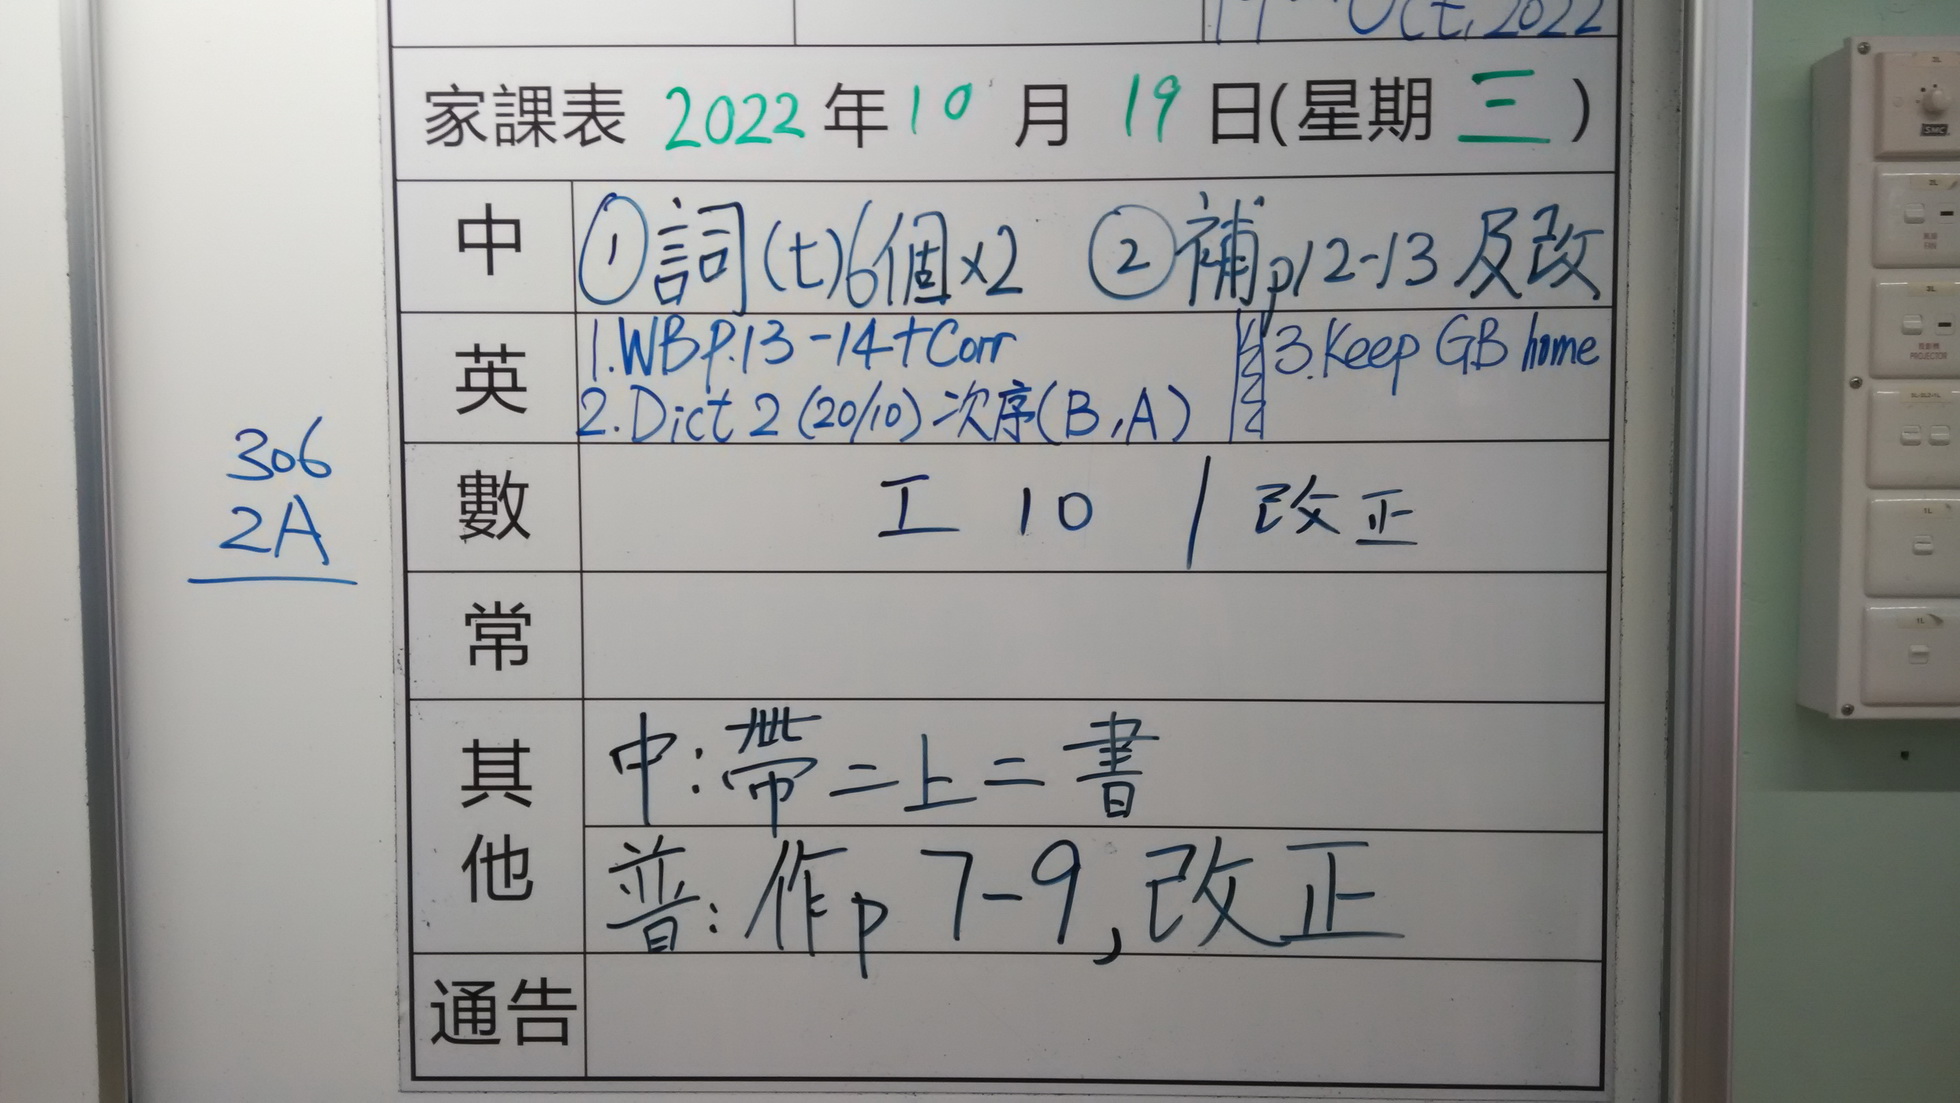 19th Oct, 2022
家課表 2022 年 10 月 19 日(星期 三 )
中 ①詞(t)6個x2 ②補p12-13 及改
英 1.WBP.13-14+Corr 3.Keep GB home
2.Dict 2 (20/10) 次序(B,A)
數 工 10 / 改正
常
其他
中:帶二上二書
普:作p 7-9,改正
通告
306
2A
SMC
PROJECTOR
1L
1L